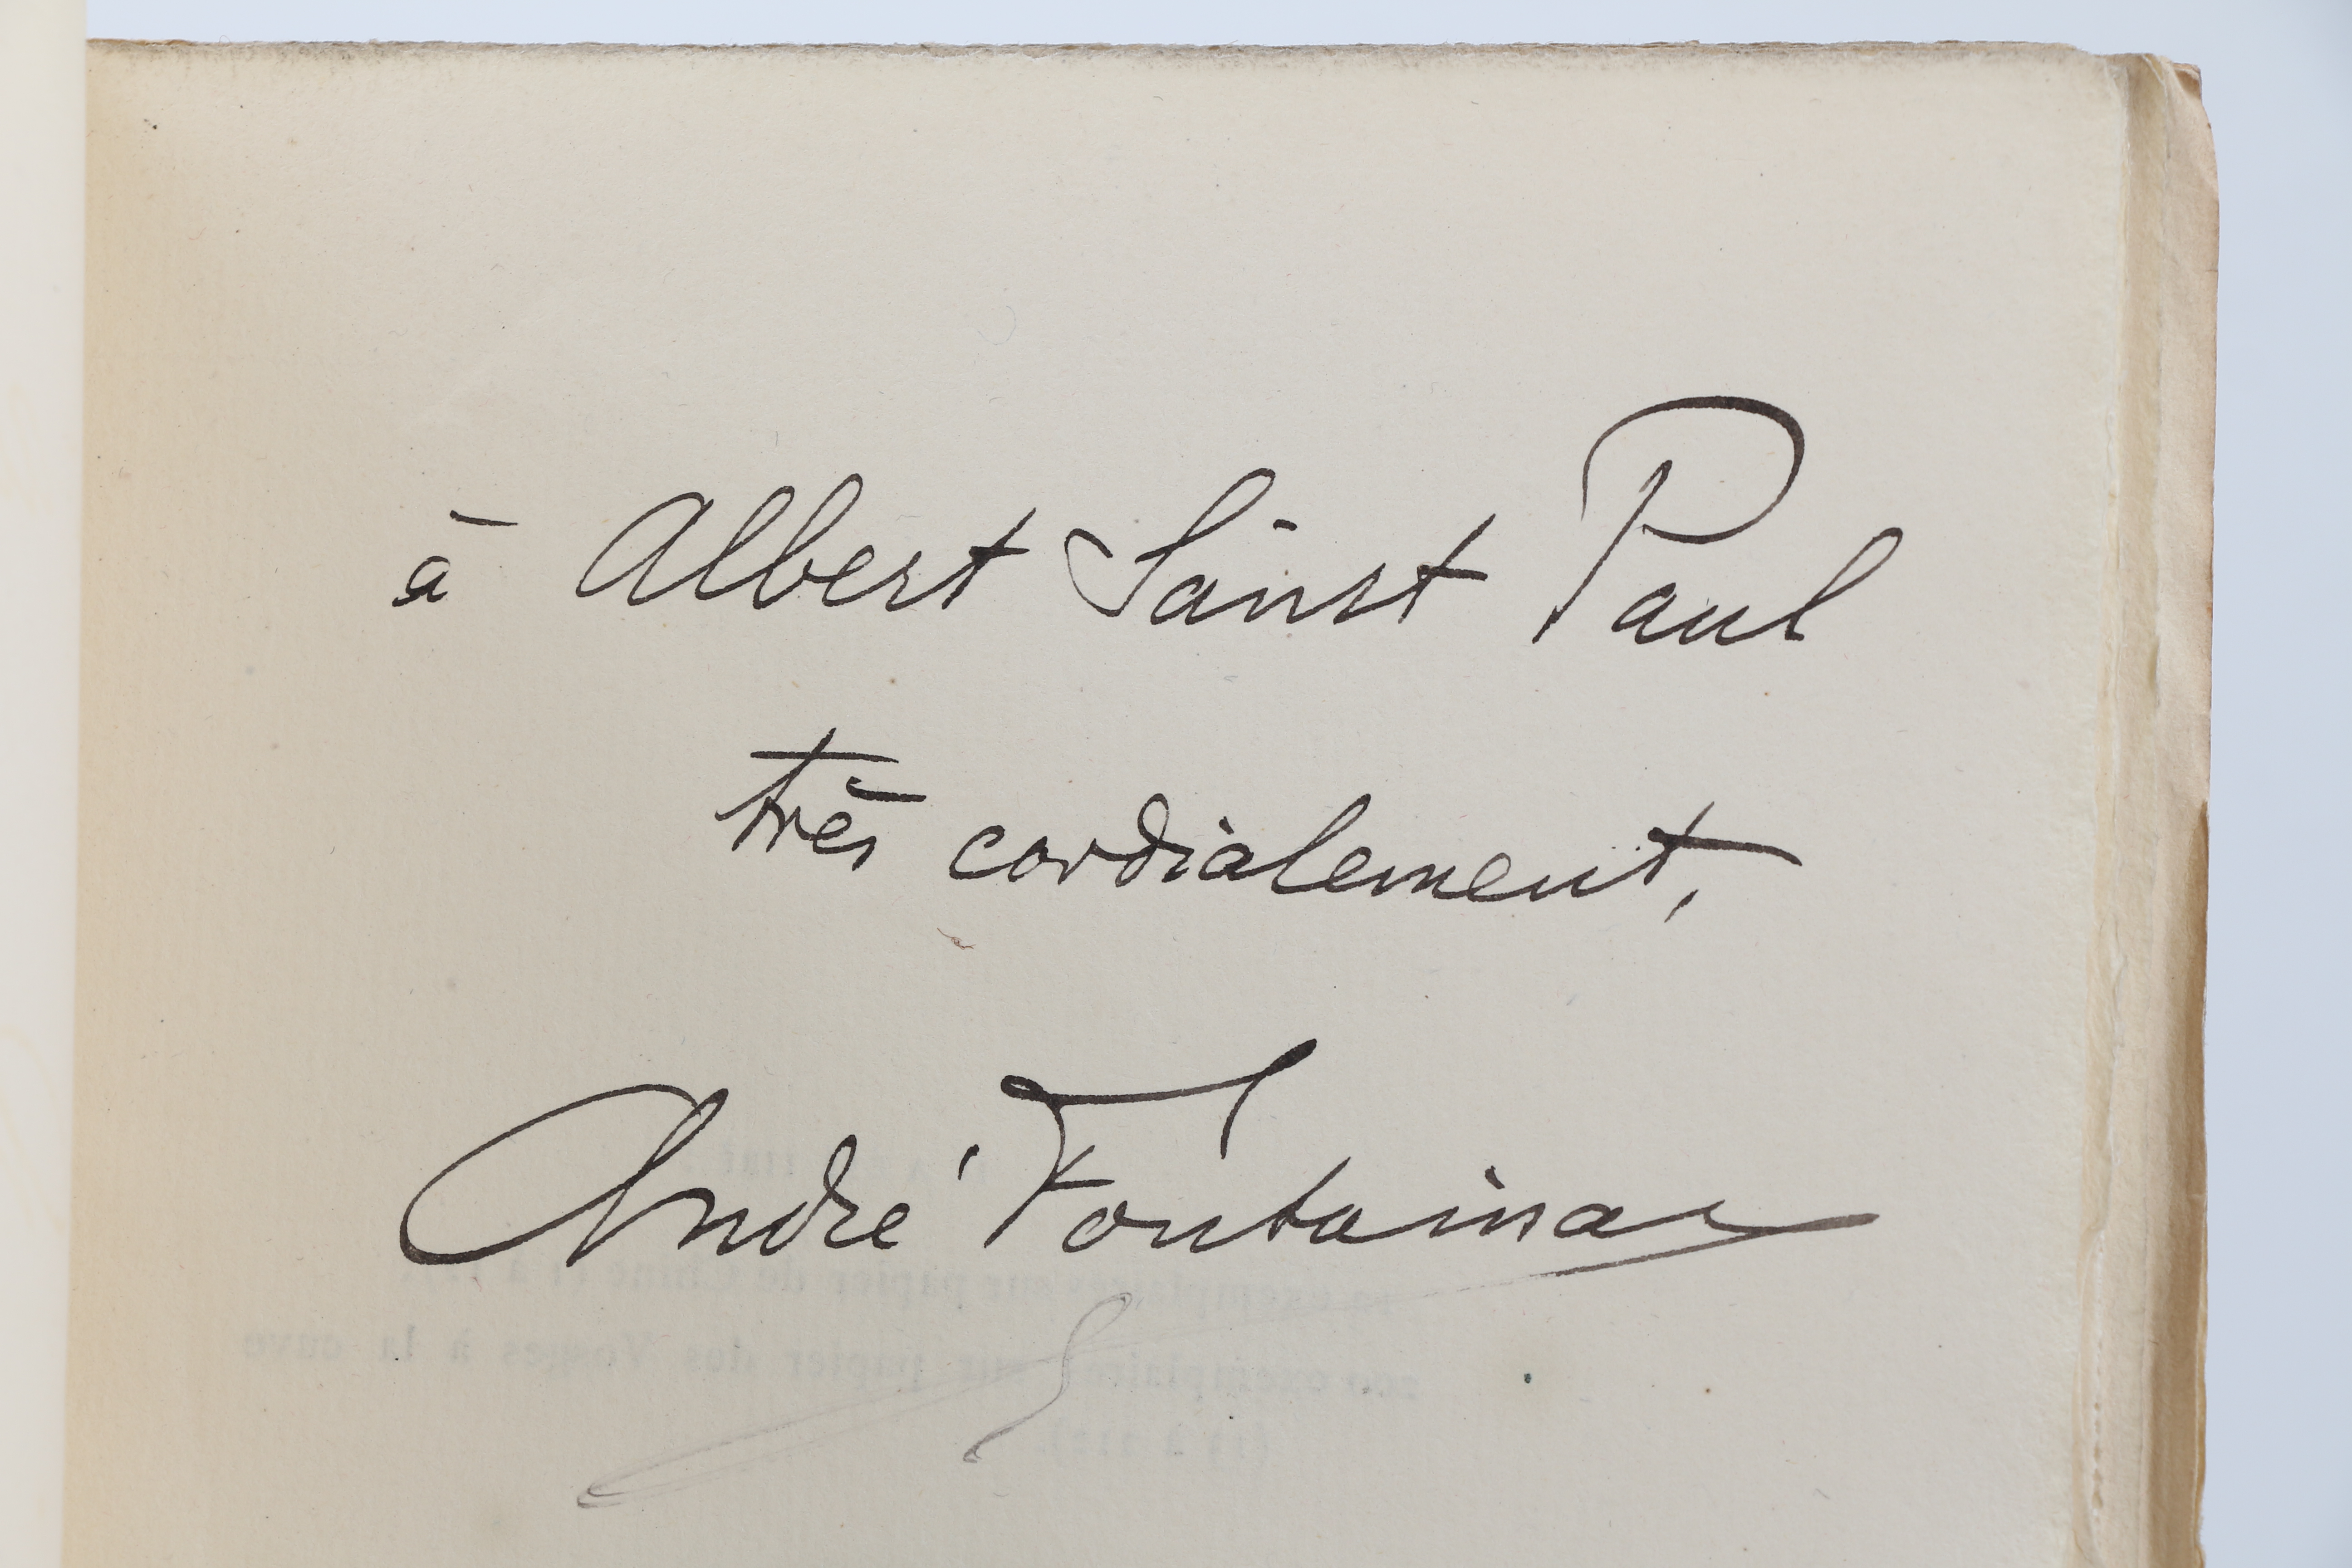 à Albert Saint Paul
très cordialement,
André Fontainas
exemplaires sur papier de Chine
exemplaires sur papier des Vosges à la cuve